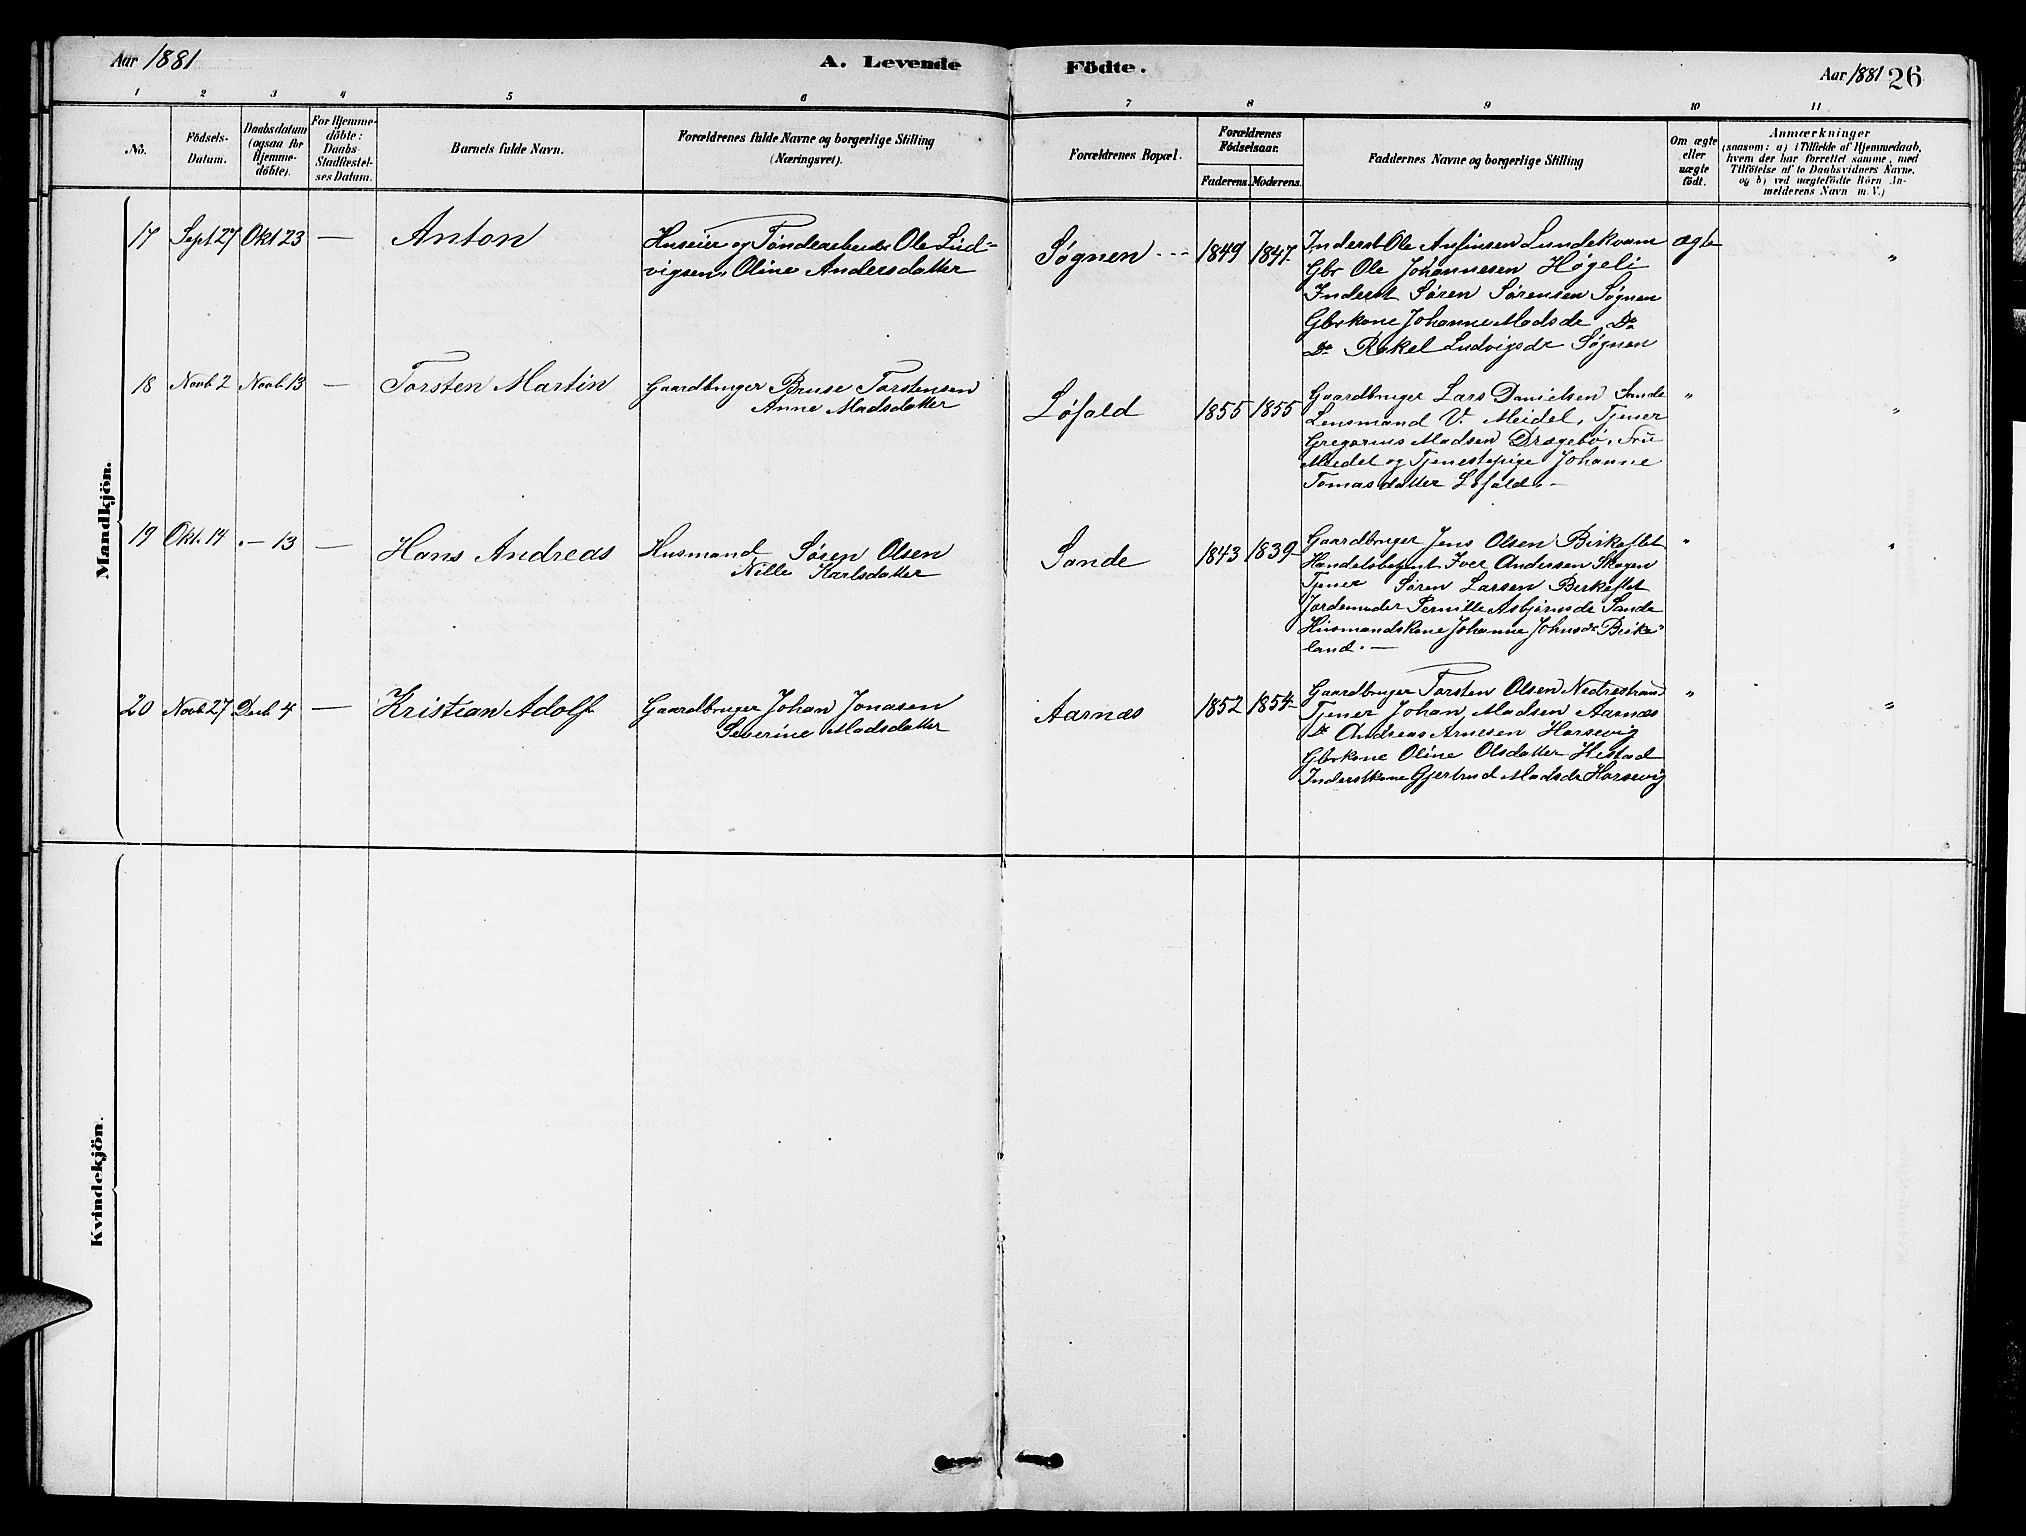 Aar 1881
A. Levende Födte.
Aar 1881 26
1 2 3 4 5 6 7 8 9 10 11
No.
Födsels-Datum.
Daabsdatum (ogsaa for Hjemme-döbte).
For Hjemme-döbte: Daabs-Stadfæstel-ses Datum.
Barnets fulde Navn.
Forældrenes fulde Navne og borgerlige Stilling (Næringsvei).
Forældrenes Bopæl.
Forældrenes Födselsaar.
Faderens. Moderens.
Faddernes Navne og borgerlige Stilling
Om ægte eller uægte födt.
Anmærkninger
(saasom: a) i Tilfælde af Hjemmedaab,
hvem der har forrettet samme, med
Tilföielse af to Daabsvidners Navne.
og b) ved uægtefödte Börn An-
melderens Navn m. V.)
Mandkjön.
17 Sept 27 Okt 23 — Anton
Huseier og Tøndearbeider Ole Lud-
vigsen, Oline Andersdatter
Søgnen 1849 1847
Inderst Ole Anfinsen Lundekvam
Gbr Ole Johannesen Høgeli
Inderst Søren Sørensen Søgnen
Gbrkone Johanne Madsdr Do
Do Rakel Ludvigsdr Søgnen
ægte "
18 Novb 2 Novb 13 — Torsten Martin
Gaardbruger Bruse Torstensen
Anne Madsdatter
Løfald 1855 1855
Gaardbruger Lars Danielsen Sande
Lensmand V. Meidel, Tjener
Gregorius Madsen Drægebø, Fru
Meidel og Tjenestepige Johanne
Tomasdatter Løfald. —
" "
19 Okt. 14 . — 13 — Hans Andreas
Husmand Søren Olsen
Nille Karlsdatter
Sande 1843 1839
Gaardbruger Jens Olsen Birkeflet
Handelsbetjent Iver Andersen Skogen
Tjener Søren Larsen Berkeflet
Jordemoder Pernille Asbjørnsdr Sande
Husmandskone Johanne Johnsdr Birke-
land. —
" "
20 Novb 27 Decb 4 — Kristian Adolf
Gaardbruger Johan Jonasen
Severine Madsdatter
Aarnæs 1852 1854
Gaardbruger Torsten Olsen Nedrestrand
Tjener Johan Madsen Aarnæs
Do Andreas Arnesen Horsevig
Gbrkone Oline Olsdatter Hestad
Inderstkone Gjertrud Madsdr Horsevig
" "
Kvindekjön.